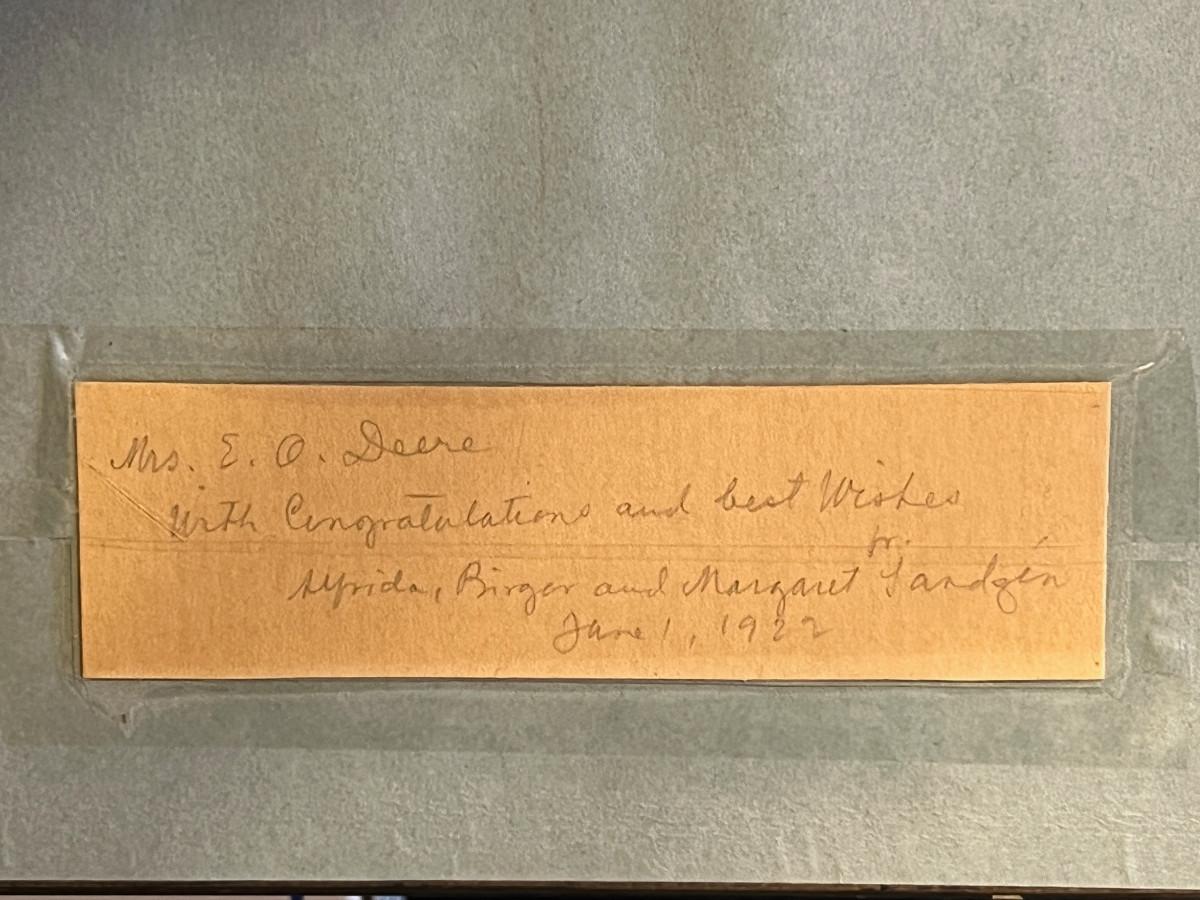 Mrs. E. O. Deere
With Congratulations and best Wishes
fr.
Alfrida, Birger and Margaret Sandzén
June 1, 1922